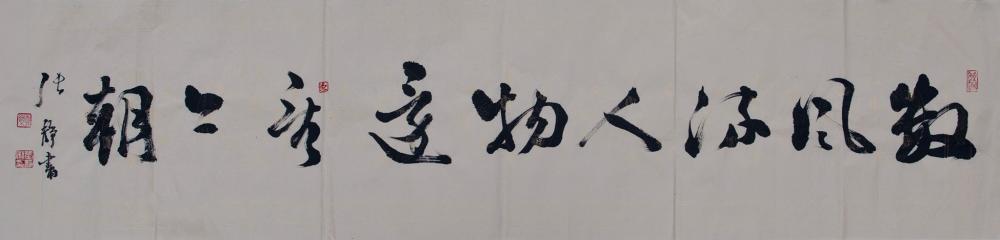 数风流人物还看今朝
张静书